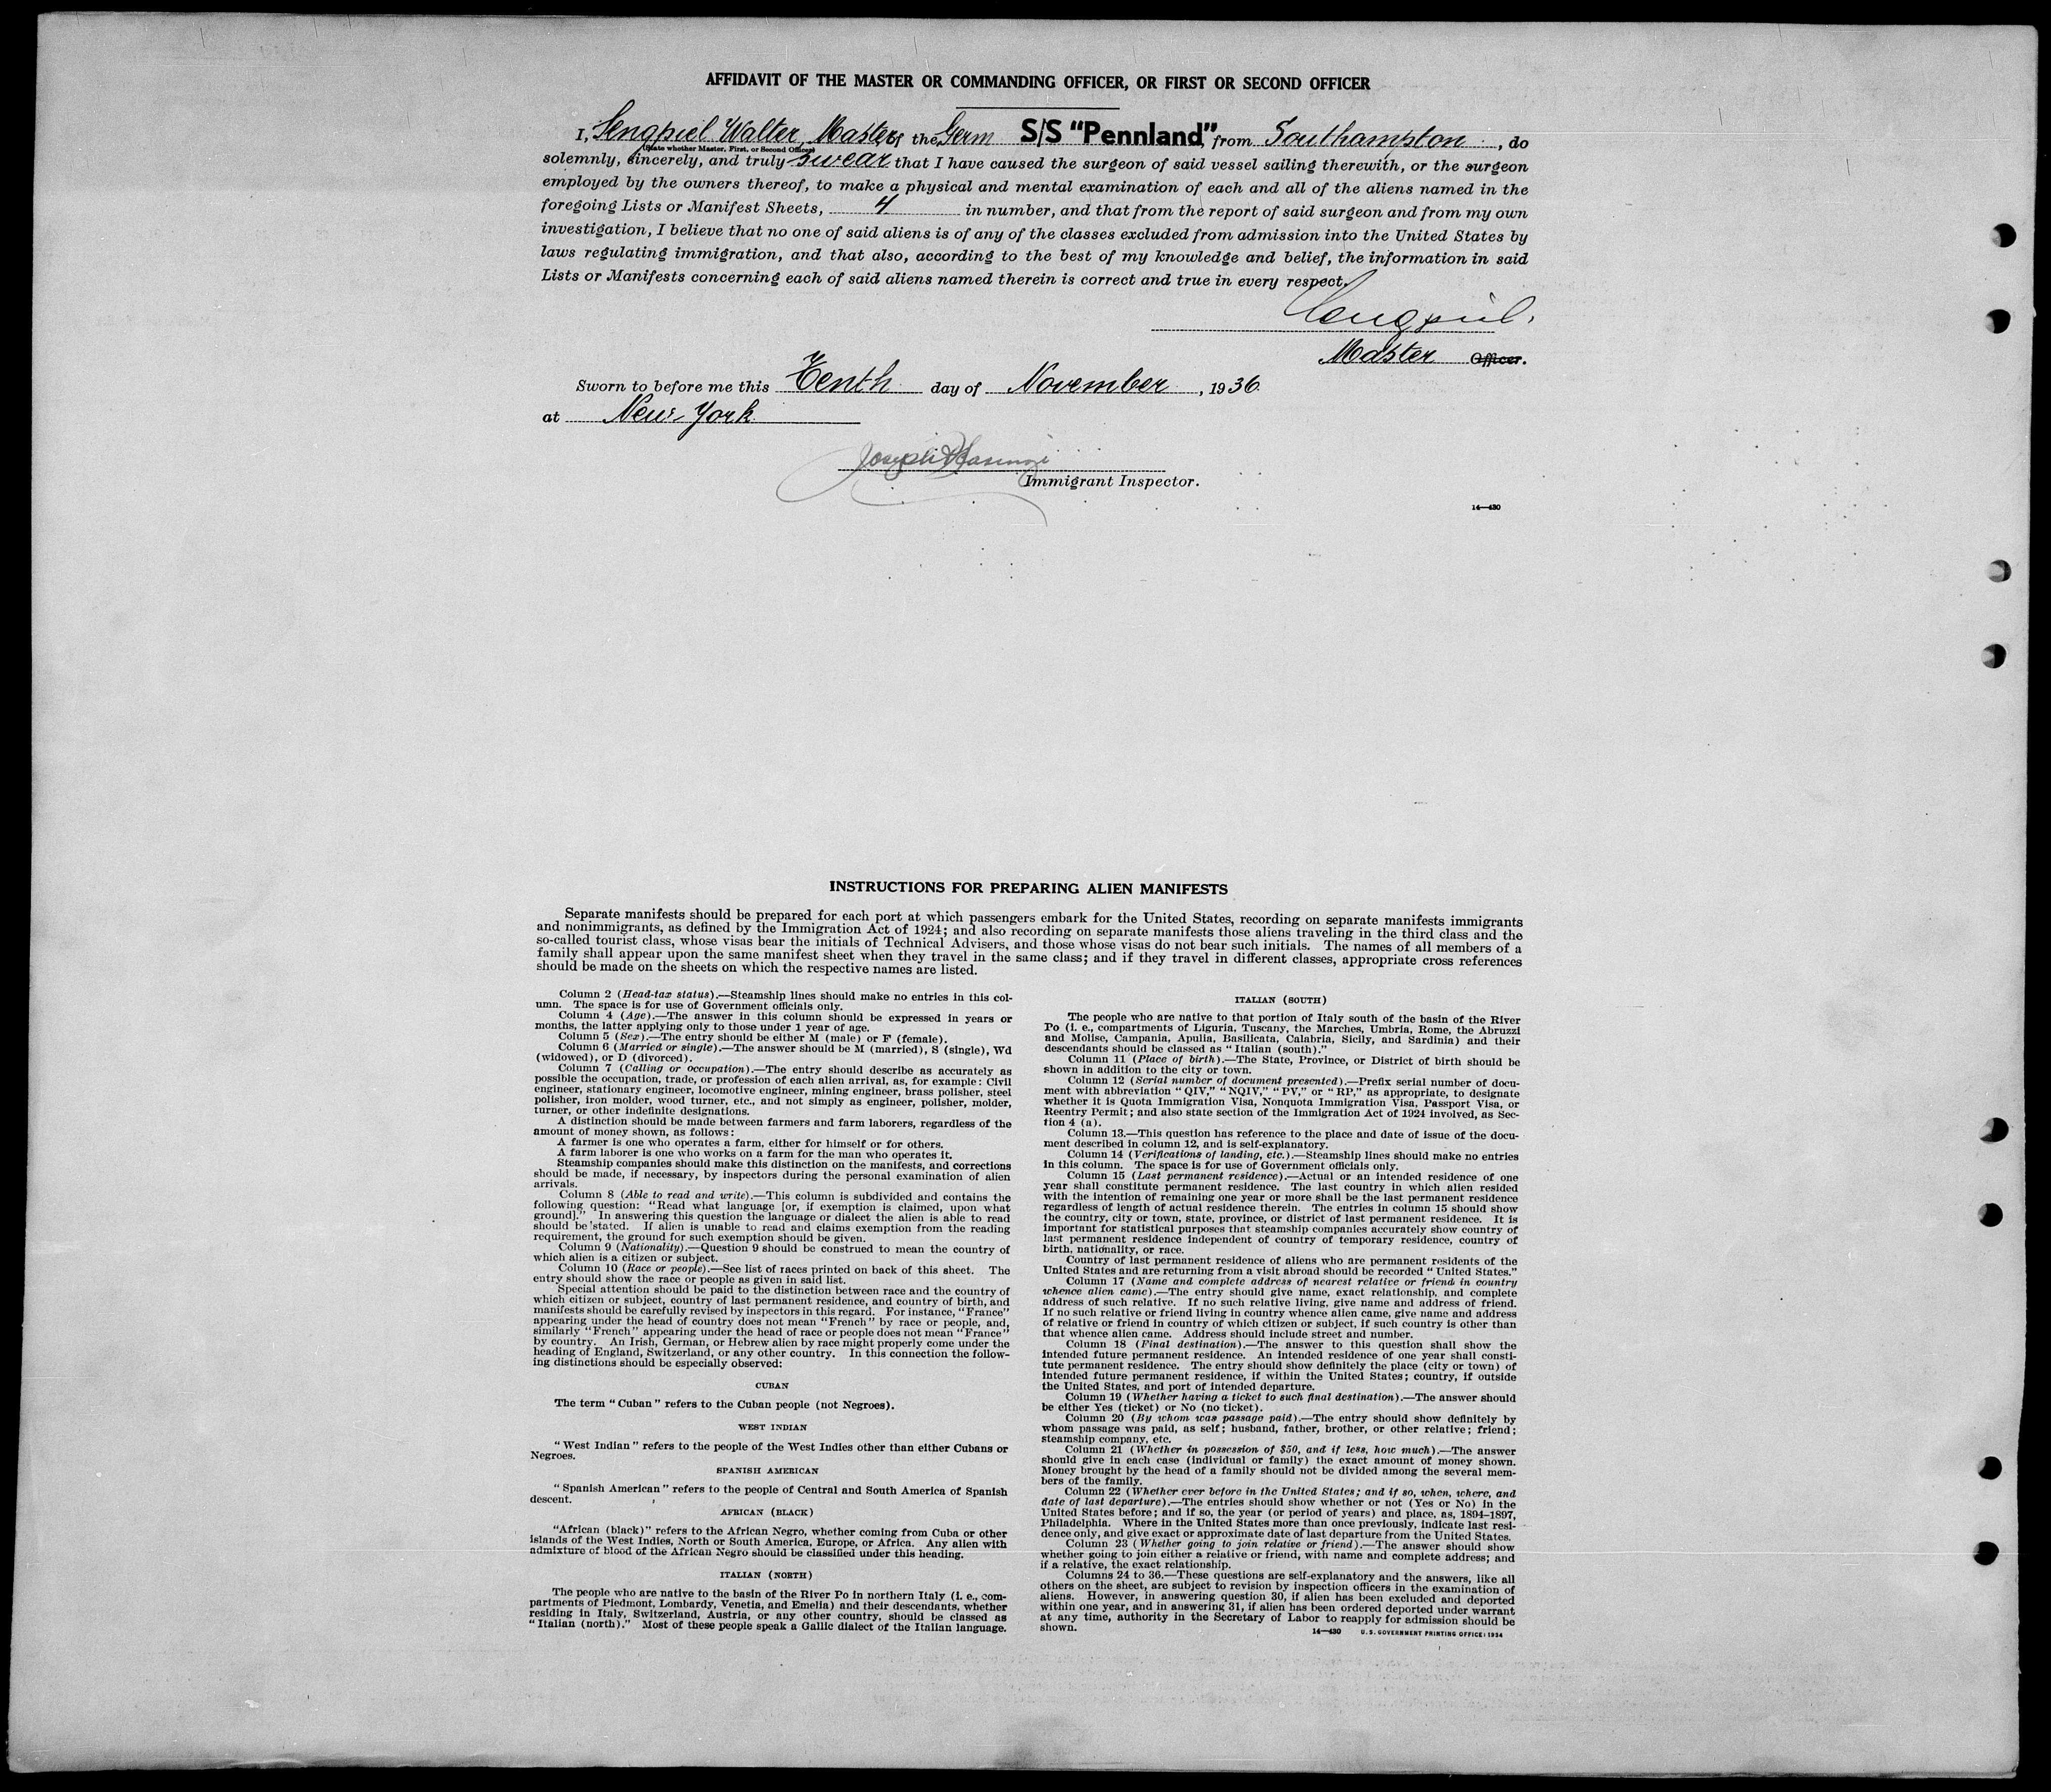 AFFIDAVIT OF THE MASTER OR COMMANDING OFFICER, OR FIRST OR SECOND OFFICER
I, Sengpiel Walter, Master of the Germ S/S "Pennland", from Southampton, do
(State whether Master, First, or Second Officer)
solemnly, sincerely, and truly swear that I have caused the surgeon of said vessel sailing therewith, or the surgeon
employed by the owners thereof, to make a physical and mental examination of each and all of the aliens named in the
foregoing Lists or Manifest Sheets, 4 in number, and that from the report of said surgeon and from my own
investigation, I believe that no one of said aliens is of any of the classes excluded from admission into the United States by
laws regulating immigration, and that also, according to the best of my knowledge and belief, the information in said
Lists or Manifests concerning each of said aliens named therein is correct and true in every respect.
Sengpiel.
Master Officer.
Sworn to before me this Tenth day of November, 1936
at New-York
Joseph
Immigrant Inspector.
14—430
INSTRUCTIONS FOR PREPARING ALIEN MANIFESTS
Separate manifests should be prepared for each port at which passengers embark for the United States, recording on separate manifests immigrants
and nonimmigrants, as defined by the Immigration Act of 1924; and also recording on separate manifests those aliens traveling in the third class and the
so-called tourist class, whose visas bear the initials of Technical Advisers, and those whose visas do not bear such initials. The names of all members of a
family shall appear upon the same manifest sheet when they travel in the same class; and if they travel in different classes, appropriate cross references
should be made on the sheets on which the respective names are listed.
Column 2 (Head-tax status).—Steamship lines should make no entries in this col-
umn. The space is for use of Government officials only.
Column 4 (Age).—The answer in this column should be expressed in years or
months, the latter applying only to those under 1 year of age.
Column 5 (Sex).—The entry should be either M (male) or F (female).
Column 6 (Married or single).—The answer should be M (married), S (single), Wd
(widowed), or D (divorced).
Column 7 (Calling or occupation).—The entry should describe as accurately as
possible the occupation, trade, or profession of each alien arrival, as, for example: Civil
engineer, stationary engineer, locomotive engineer, mining engineer, brass polisher, steel
polisher, iron molder, wood turner, etc., and not simply as engineer, polisher, molder,
turner, or other indefinite designations.
A distinction should be made between farmers and farm laborers, regardless of the
amount of money shown, as follows:
A farmer is one who operates a farm, either for himself or for others.
A farm laborer is one who works on a farm for the man who operates it.
Steamship companies should make this distinction on the manifests, and corrections
should be made, if necessary, by inspectors during the personal examination of alien
arrivals.
Column 8 (Able to read and write).—This column is subdivided and contains the
following question: "Read what language [or, if exemption is claimed, upon what
ground]." In answering this question the language or dialect the alien is able to read
should be stated. If alien is unable to read and claims exemption from the reading
requirement, the ground for such exemption should be given.
Column 9 (Nationality).—Question 9 should be construed to mean the country of
which alien is a citizen or subject.
Column 10 (Race or people).—See list of races printed on back of this sheet. The
entry should show the race or people as given in said list.
Special attention should be paid to the distinction between race and the country of
which citizen or subject, country of last permanent residence, and country of birth, and
manifests should be carefully revised by inspectors in this regard. For instance, "France"
appearing under the head of country does not mean "French" by race or people, and,
similarly "French" appearing under the head of race or people does not mean "France"
by country. An Irish, German, or Hebrew alien by race might properly come under the
heading of England, Switzerland, or any other country. In this connection the follow-
ing distinctions should be especially observed:
CUBAN
The term "Cuban" refers to the Cuban people (not Negroes).
WEST INDIAN
"West Indian" refers to the people of the West Indies other than either Cubans or
Negroes.
SPANISH AMERICAN
"Spanish American" refers to the people of Central and South America of Spanish
descent.
AFRICAN (BLACK)
"African (black)" refers to the African Negro, whether coming from Cuba or other
islands of the West Indies, North or South America, Europe, or Africa. Any alien with
admixture of blood of the African Negro should be classified under this heading.
ITALIAN (NORTH)
The people who are native to the basin of the River Po in northern Italy (i. e., com-
partments of Piedmont, Lombardy, Venetia, and Emelia) and their descendants, whether
residing in Italy, Switzerland, Austria, or any other country, should be classed as
"Italian (north)." Most of these people speak a Gallic dialect of the Italian language.
ITALIAN (SOUTH)
The people who are native to that portion of Italy south of the basin of the River
Po (i. e., compartments of Liguria, Tuscany, the Marches, Umbria, Rome, the Abruzzi
and Molise, Campania, Apulia, Basilicata, Calabria, Sicily, and Sardinia) and their
descendants should be classed as "Italian (south)."
Column 11 (Place of birth).—The State, Province, or District of birth should be
shown in addition to the city or town.
Column 12 (Serial number of document presented).—Prefix serial number of docu-
ment with abbreviation "QIV," "NQIV," "PV," or "RP," as appropriate, to designate
whether it is Quota Immigration Visa, Nonquota Immigration Visa, Passport Visa, or
Reentry Permit; and also state section of the Immigration Act of 1924 involved, as Sec-
tion 4 (a).
Column 13.—This question has reference to the place and date of issue of the docu-
ment described in column 12, and is self-explanatory.
Column 14 (Verifications of landing, etc.).—Steamship lines should make no entries
in this column. The space is for use of Government officials only.
Column 15 (Last permanent residence).—Actual or an intended residence of one
year shall constitute permanent residence. The last country in which alien resided
with the intention of remaining one year or more shall be the last permanent residence
regardless of length of actual residence therein. The entries in column 15 should show
the country, city or town, state, province, or district of last permanent residence. It is
important for statistical purposes that steamship companies accurately show country of
last permanent residence independent of country of temporary residence, country of
birth, nationality, or race.
Country of last permanent residence of aliens who are permanent residents of the
United States and are returning from a visit abroad should be recorded "United States."
Column 17 (Name and complete address of nearest relative or friend in country
whence alien came).—The entry should give name, exact relationship, and complete
address of such relative. If no such relative living, give name and address of friend.
If no such relative or friend living in country whence alien came, give name and address
of relative or friend in country of which citizen or subject, if such country is other than
that whence alien came. Address should include street and number.
Column 18 (Final destination).—The answer to this question shall show the
intended future permanent residence. An intended residence of one year shall consti-
tute permanent residence. The entry should show definitely the place (city or town) of
intended future permanent residence, if within the United States; country, if outside
the United States, and port of intended departure.
Column 19 (Whether having a ticket to such final destination).—The answer should
be either Yes (ticket) or No (no ticket).
Column 20 (By whom was passage paid).—The entry should show definitely by
whom passage was paid, as self; husband, father, brother, or other relative; friend;
steamship company, etc.
Column 21 (Whether in possession of $50, and if less, how much).—The answer
should give in each case (individual or family) the exact amount of money shown.
Money brought by the head of a family should not be divided among the several mem-
bers of the family.
Column 22 (Whether ever before in the United States; and if so, when, where, and
date of last departure).—The entries should show whether or not (Yes or No) in the
United States before; and if so, the year (or period of years) and place, as, 1894–1897,
Philadelphia. Where in the United States more than once previously, indicate last resi-
dence only, and give exact or approximate date of last departure from the United States.
Column 23 (Whether going to join relative or friend).—The answer should show
whether going to join either a relative or friend, with name and complete address; and
if a relative, the exact relationship.
Columns 24 to 36.—These questions are self-explanatory and the answers, like all
others on the sheet, are subject to revision by inspection officers in the examination of
aliens. However, in answering question 30, if alien has been excluded and deported
within one year, and in answering 31, if alien has been ordered deported under warrant
at any time, authority in the Secretary of Labor to reapply for admission should be
shown.
14—430 U. S. GOVERNMENT PRINTING OFFICE: 1934